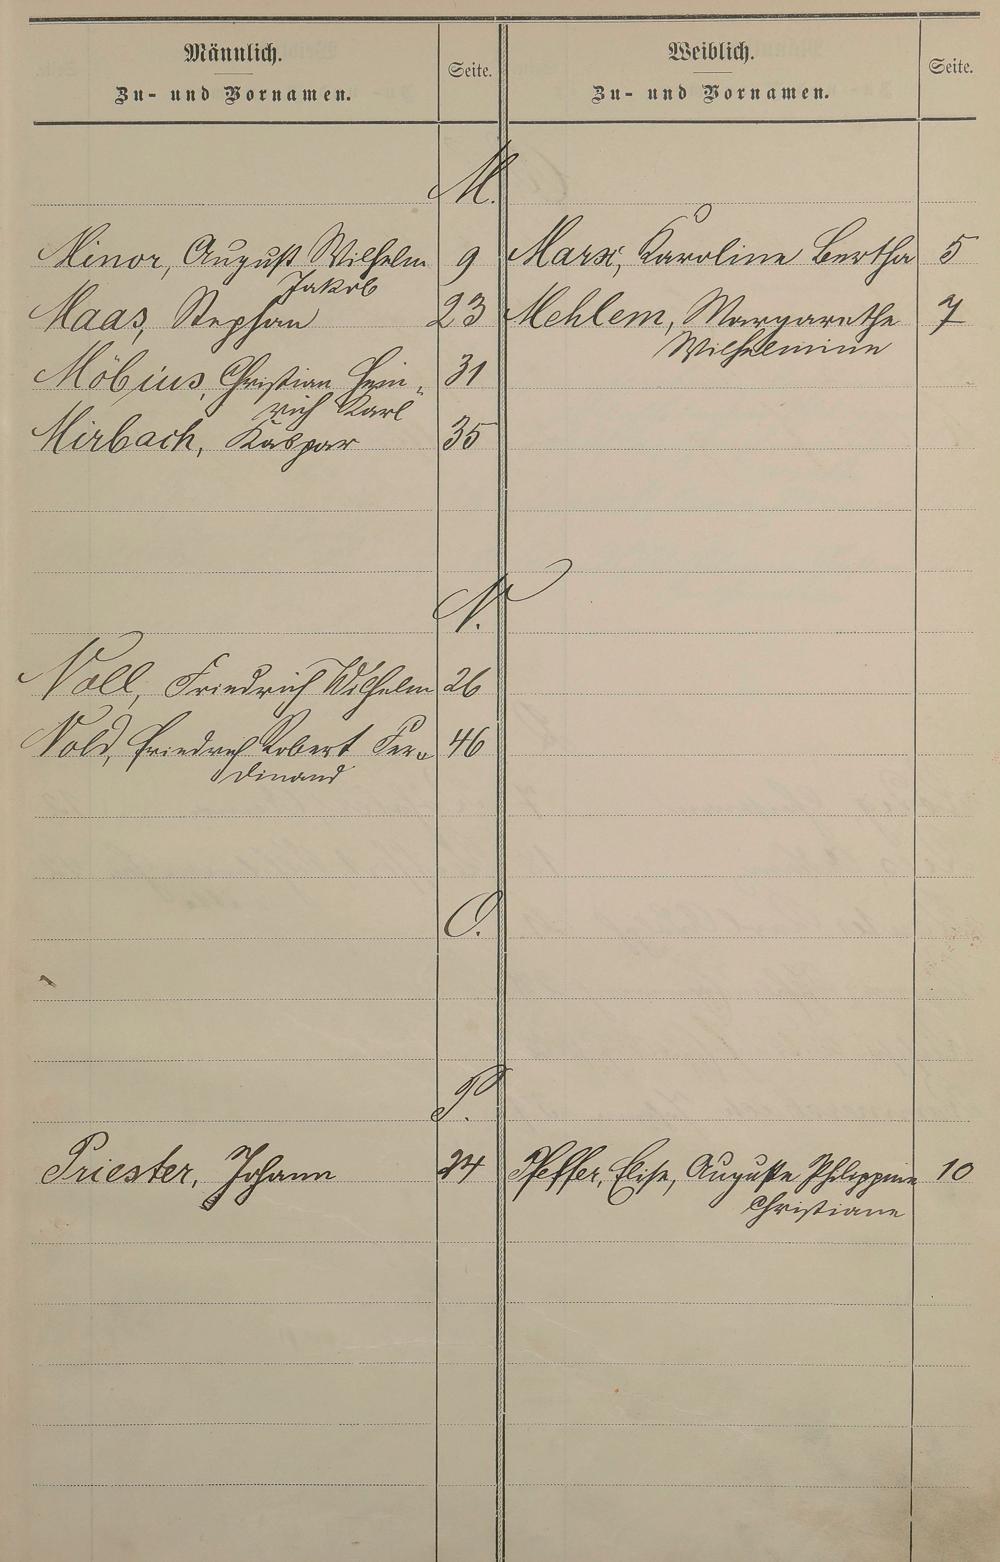 Männlich.
Zu- und Vornamen.
Seite.
Weiblich.
Zu- und Vornamen.
Seite.
M.
Minor, August Wilhelm 9 Marx, Karoline Bertha 5
Jakob
Maas, Stephan 23 Mehlem, Margarethe 7
Wilhelmine
Möbius, Christian Hein- 31
rich Karl
Mirbach, Kaspar 35
N.
Noll, Friedrich Wilhelm 26
Nold, Friedrich Robert Fer- 46
dinand
O.
P.
Priester, Johann 24 Pfeffer, Elise, Auguste Philippine 10
Christiane